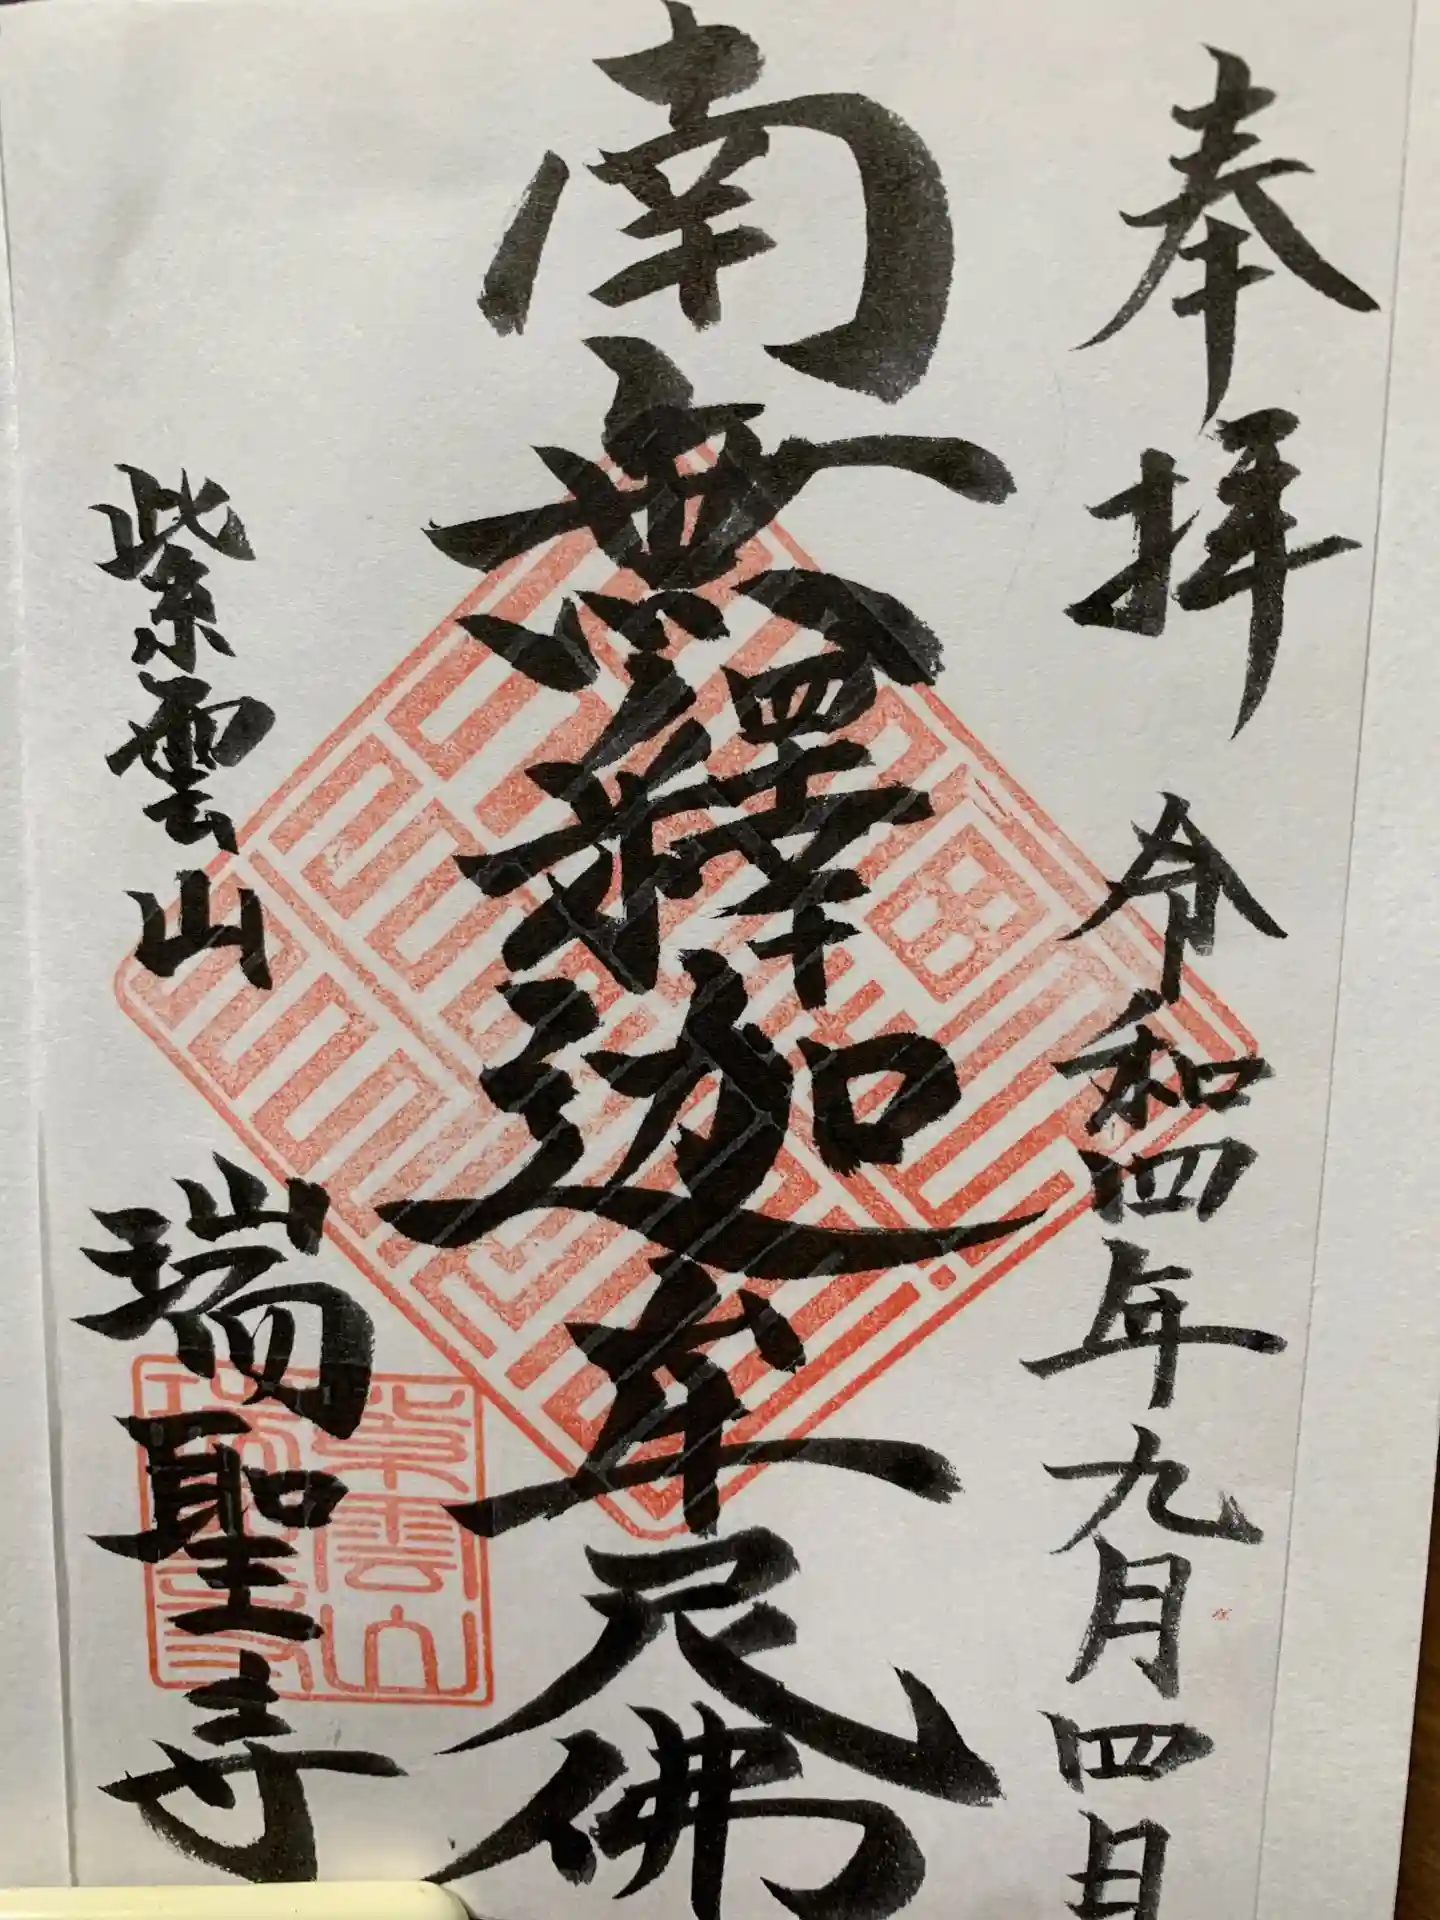 奉拝 令和四年九月四日
南無釋迦牟尼佛
紫雲山 瑞聖寺
紫雲山
瑞聖寺